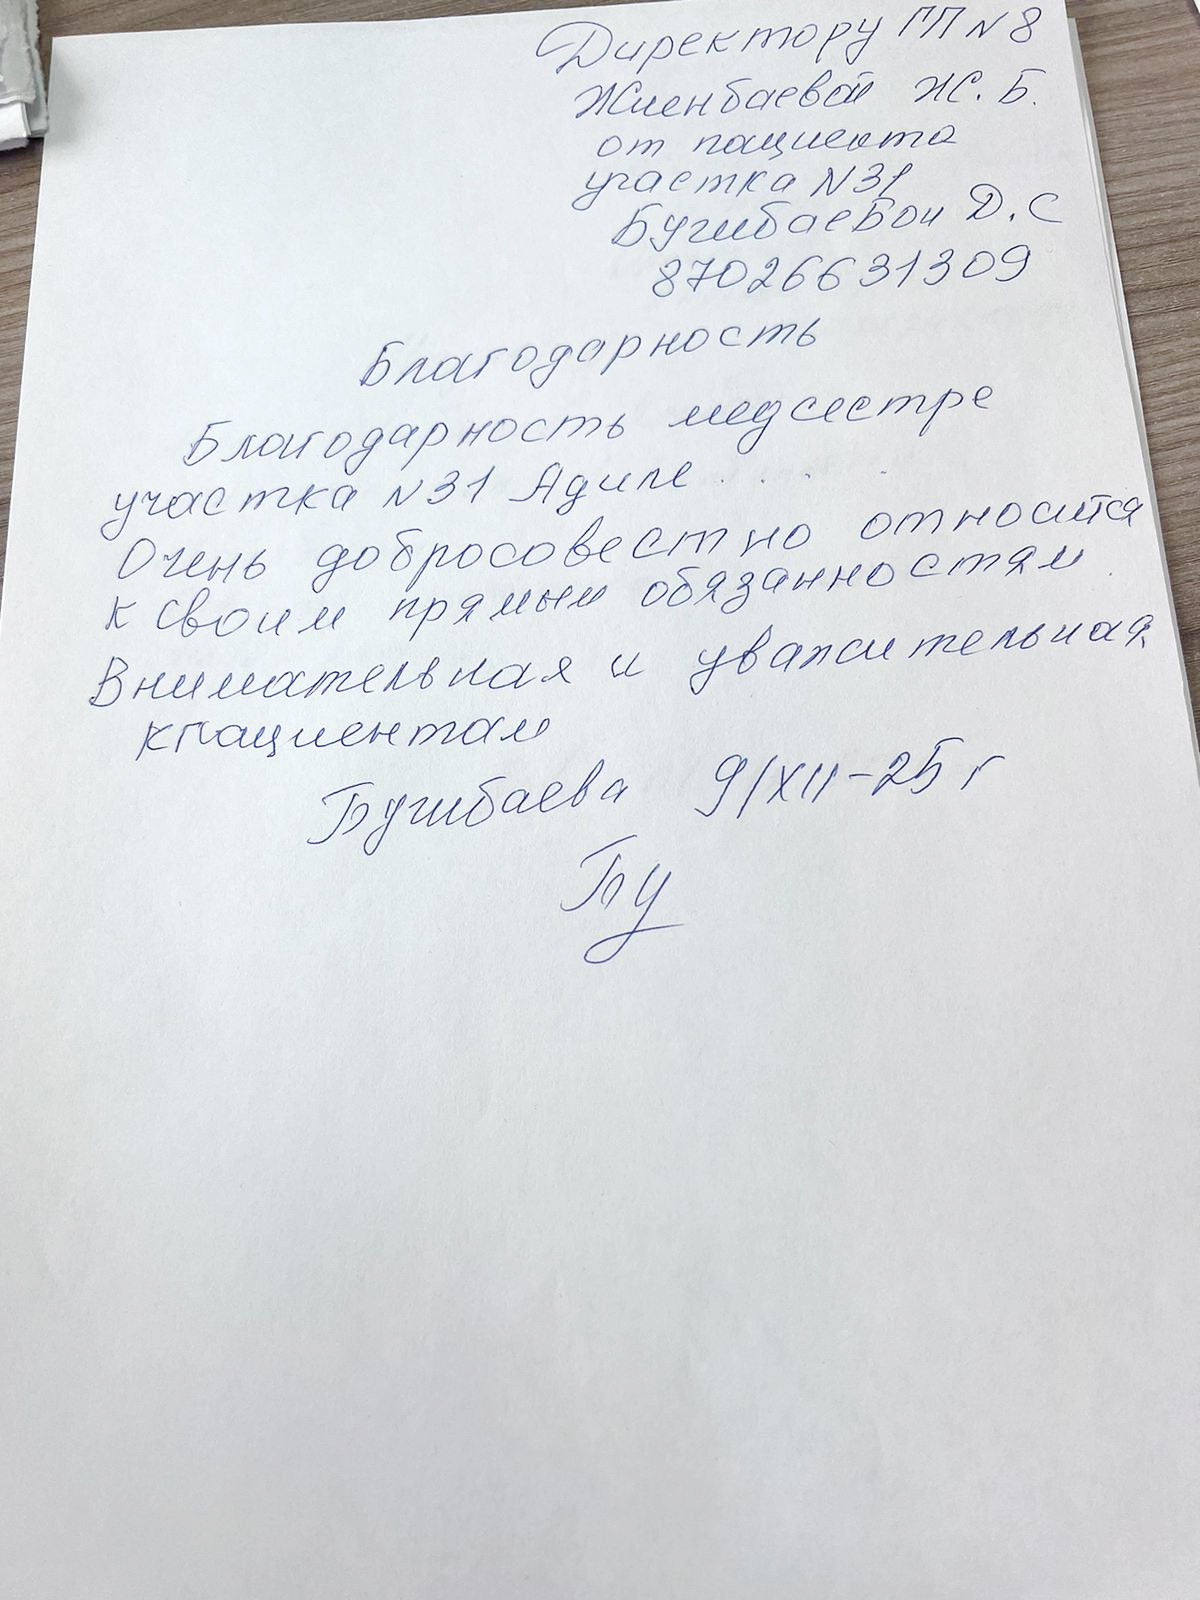 Директору ГП N 8
Жиенбаевой Ж. Б.
от пациента
участка N31
Бугибаевой Д. С
87026631309
Благодарность
Благодарность медсестре
участка N31 Адиле
Очень добросовестно относится
к своим прямым обязанностям.
Внимательная и уважительная
к пациентам
Бугибаева 9/XII-25 г
Бу